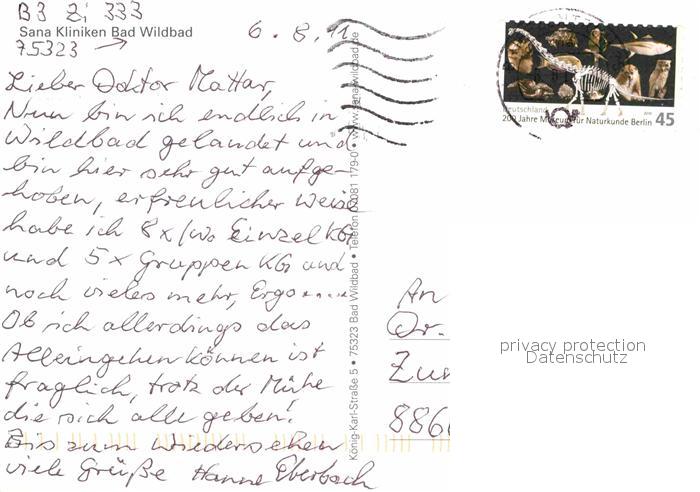 B3 Zi 333
Sana Kliniken Bad Wildbad
75323 →
6.8.11
Lieber Doktor Mattar,
Nun bin ich endlich in
Wildbad gelandet und
bin hier sehr gut aufge-
hoben, erfreulicher Weise
habe ich 8x/Wo Einzel KG
und 5x Gruppen KG und
noch vieles mehr, Ergo....
Ob ich allerdings das
Alleingehen können ist
fraglich, trotz der Mühe
die sich alle geben!
Bis zum Wiedersehen
viele Grüße Hanne Eberbach
König-Karl-Straße 5 • 75323 Bad Wildbad • Telefon 07081 179-0 • www.sana-wildbad.de
Deutschland
200 Jahre Museum für Naturkunde Berlin
45
An
Dr.
Zur
886
privacy protection
Datenschutz